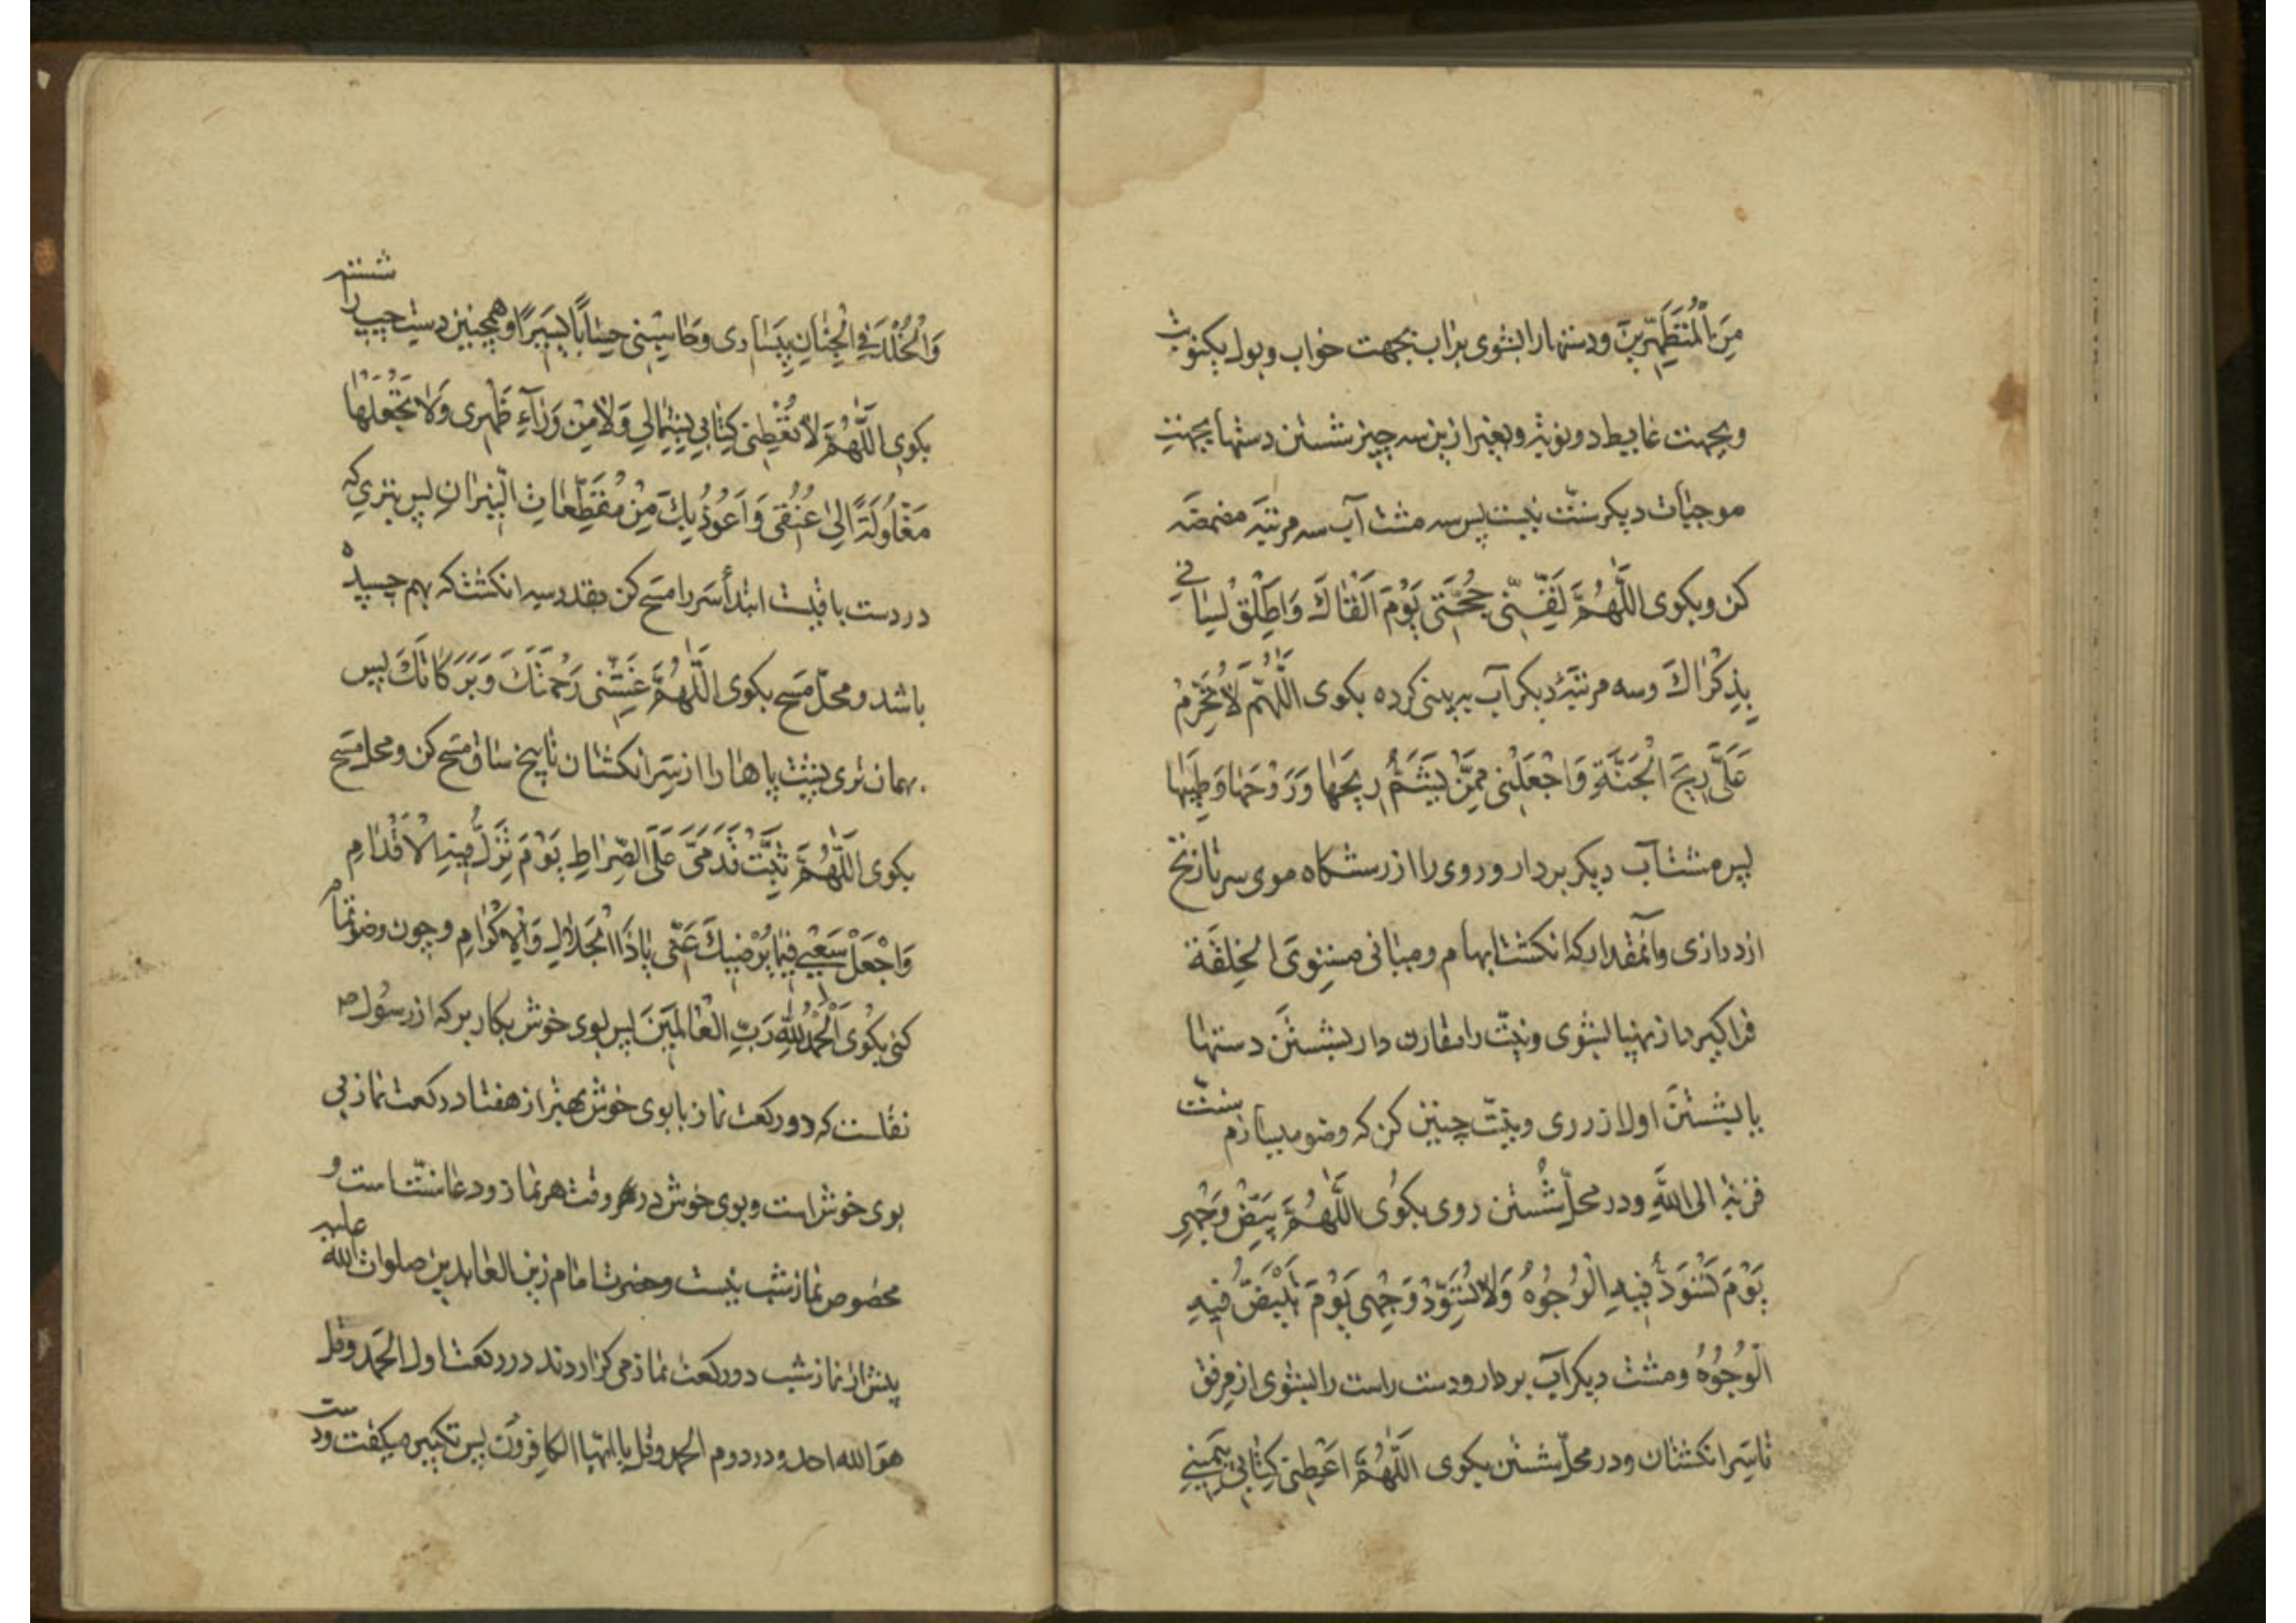 مِنَ الْمُتَطَهِّرِينَ ودستها را بشوی براب بجهت خواب وبول یکنوبت
وبجهت غایط دو نوبة وبغیر ازین سه چیز شستن دستها بجهت
موجبات دیکر سنّت نیست پس سه مشت آب سه مرتبَه مضمضَه
کن وبکوی اللَّهُمَّ لَقِّنّی حُجَّتی یَوْمَ اَلْقٰاكَ وَاَطلِقْ لِسٰانی
بِذِکْرٰاكَ وسه مرتبَهٔ دیکر آب به بینی کرده بکوی اللَّهُمَّ لاٰ تُحَرِّمْ
عَلَیَّ رِیحَ الْجَنَّةِ وَاجْعَلْنی مِمَّنْ یَشَمُّ رِیحَهٰا وَرَوْحَهٰا وَطِیبَهٰا
پس مشت آب دیکر بردار و روی را از رستنکاه موی سر تا زنخ
از درازی وآنمقدار که انکشت ابهام ومیانی مستوی الخِلقَة
فراکیرد از پهنا بشوی ونیّت را مقارن دار بشستن دستها
یا بشستن اولاز روی ونیّت چنین کن که وضو میسازم سنّت
قربة الی اللهِ ودر محلّ شُستن روی بکوی اللَّهُمَّ بَیِّضْ وَجْهی
یَوْمَ تَسْوَدُّ فِیهِ الْوُجُوُهُ وَلاٰ تُسَوِّدْ وَجْهی یَوْمَ تَبْیَضُّ فِیهِ
الْوُجُوُهُ ومشت دیکر آب بردار ودست راست را بشوی از مرفق
تا سَر انکشتان ودر محلّ شستن بکوی اَللَّهُمَّ اَعْطِنی کِتٰابی بِیَمینی
وَالْخُلْدَ فِی الْجِنٰانِ بِیَسٰاری وَحٰاسِبْنی حِسٰاباً یَسیراً وهمچنین دست چپ را شسته
بکوی اللَّهُمَّ لاٰ تُعْطِنی کِتٰابی بِشِمٰالی وَلاٰ مِنْ وَرٰآءِ ظَهْری وَلاٰ تَجْعَلْهٰا
مَغْلُولَةً اِلیٰ عُنُقی وَاَعُوذُ بِكَ مِنْ مُقَطِّعٰاتِ النّیٖرانِ پس بتری که
در دست باقیست ابتدأ سَر را مسَح کن بقدر سه انکشت که بهم چسپیده
باشد ومحلّ مَسح بکوی اللَّهُمَّ غَشِّنی رَحْمَتَكَ وَبَرَکٰاتَكَ پس
بهمان تری پشت پاهٰا را از سَر انکشتان تا بیخ ساق مسَح کن ومحل مَسح
بکوی اللَّهُمَّ ثَبِّتْ قَدَمَیَّ عَلَی الصِّرٰاطِ یَوْمَ تَزِلُّ فیهِ الْاَقْدٰامِ
وَاجْعَلْ سَعْیی فیمٰا یُرْضیكَ عَنّی یٰا ذَا الْجَلاٰلِ وَالْاِکْرٰامِ وچون وضو تمام
کنی بکوی اَلْحَمْدُ لِلّٰهِ رَبِّ الْعٰالَمینَ پس بوی خوش بکار بر که از رسُول ص
نقلست که دو رکعت نماز با بوی خوش بهتر از هفتاد رکعت نماز بی
بوی خوش است وبوی خوش در وقت هر نماز ودعا سنّت است و
مخصوص نماز شب نیست وحضرت امام زین العابدین صلوات الله علیه
پیش از نماز شب دو رکعت نماز می کزاردند در رکعت اول الحَمد وقل
هو الله احد ودر دوم الحمد وقل یا ایّها الکافرون پس تکبیر میکفت ودست